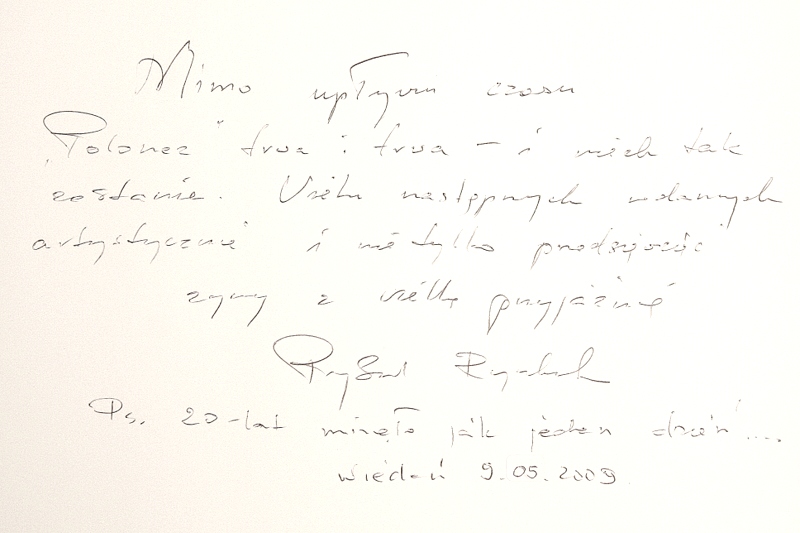 Mimo upływu czasu
„Polonez" trwa i trwa – i niech tak
zostanie. Wielu następnych udanych
artystycznie i nie tylko przedsięwzięć
życzy z wielką przyjaźnią
Ps. 20-lat minęło jak jeden dzień....
Wiedeń 9.05.2009